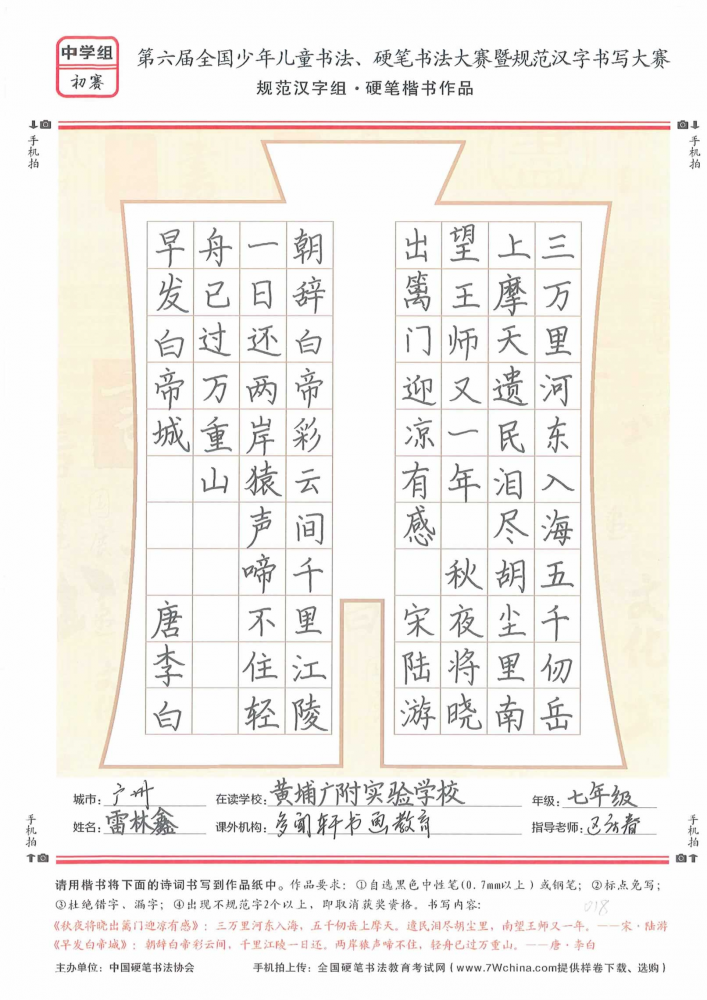 中学组
初赛
第六届全国少年儿童书法、硬笔书法大赛暨规范汉字书写大赛
规范汉字组·硬笔楷书作品
手机拍
手机拍
三万里河东入海五千仞岳
上摩天遗民泪尽胡尘里南
望王师又一年 秋夜将晓
出篱门迎凉有感 宋陆游
朝辞白帝彩云间千里江陵
一日还两岸猿声啼不住轻
舟已过万重山
早发白帝城 唐李白
城市：广州 在读学校：黄埔广附实验学校 年级：七年级
姓名：雷林鑫 课外机构：多闻轩书画教育 指导老师：
手机拍
手机拍
请用楷书将下面的诗词书写到作品纸中。作品要求：①自选黑色中性笔(0.7mm以上）或钢笔；②标点免写；
③杜绝错字，漏字；④出现不规范字2个以上，即取消获奖资格。书写内容：
018
《秋夜将晓出篱门迎凉有感》：三万里河东入海，五千仞岳上摩天。遗民泪尽胡尘里，南望王师又一年。——宋·陆游
《早发白帝城》：朝辞白帝彩云间，千里江陵一日还。两岸猿声啼不住，轻舟已过万重山。——唐·李白
主办单位：中国硬笔书法协会 手机拍上传：全国硬笔书法教育考试网（www.7Wchina.com提供样卷下载、选购）